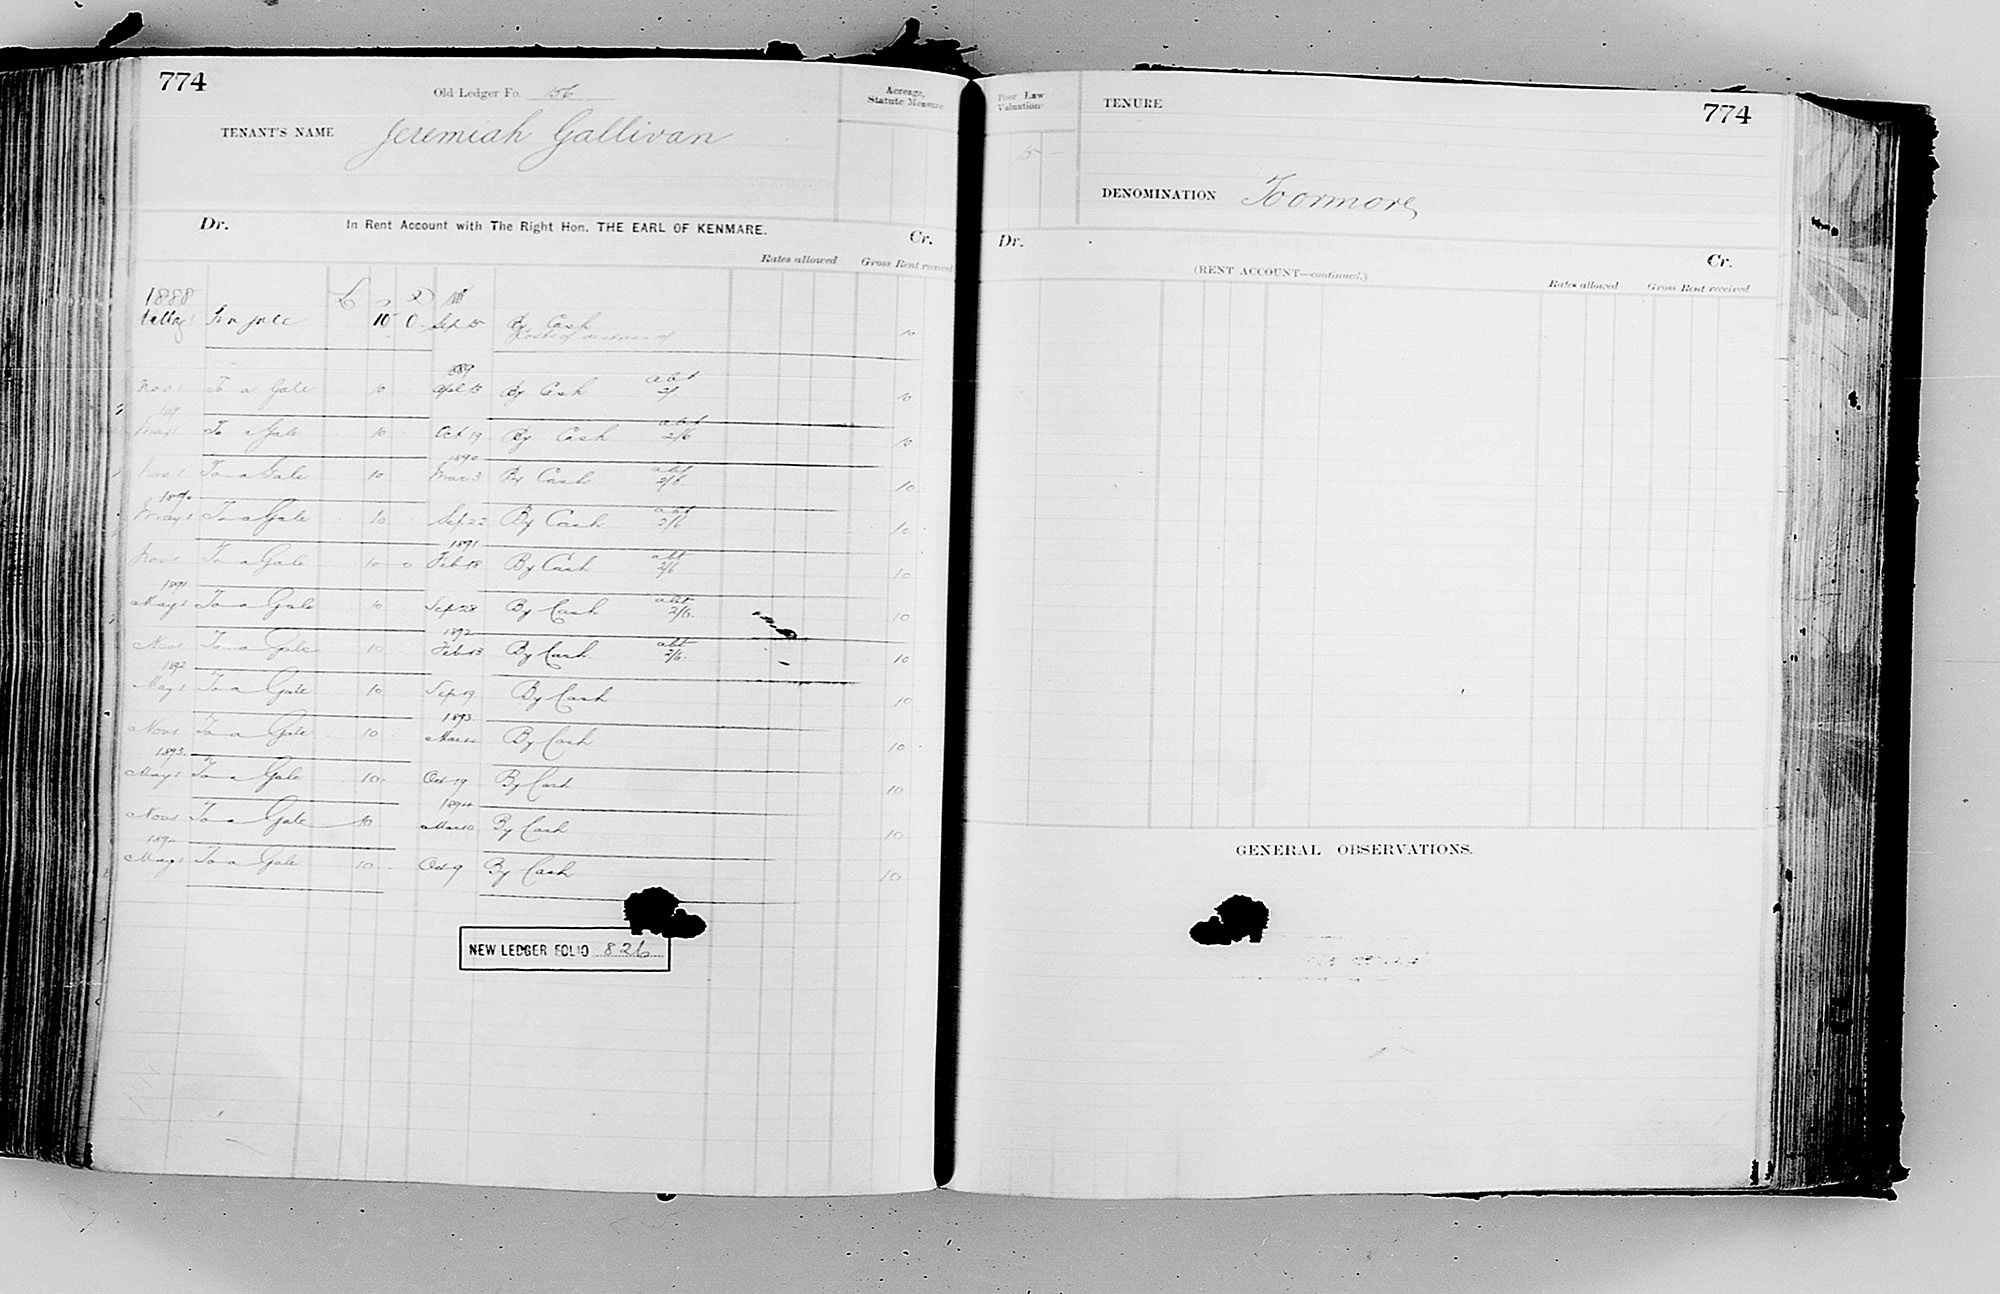 774
Old Ledger Fo. 56
Acreage, Statute Measure
TENANT'S NAME Jeremiah Gallivan
Dr. In Rent Account with The Right Hon. THE EARL OF KENMARE. Cr.
Rates allowed Gross Rent received
1888 £ D
10 0 Sep 15 By Cash 10
1889
Nov 1 To a Gale 10 Apl 15 By Cash abt 10
May 1 To a Gale 10 Oct 19 By Cash abt 2/6 10
1890
Nov 1 To a Gale 10 Mar 3 By Cash abt 2/6 10
1890
May 1 To a Gale 10 Sep 22 By Cash abt 2/6 10
1891
Nov 1 To a Gale 10 0 Feb 18 By Cash abt 2/6 10
1891
May 1 To a Gale 10 Sep 28 By Cash abt 2/6 10
1892
Nov 1 To a Gale 10 Feb 13 By Cash abt 2/6 10
1892
May 1 To a Gale 10 Sep 19 By Cash 10
1893
Nov 1 To a Gale 10 Mar By Cash 10
1893
May 1 To a Gale 10 Oct 19 By Cash 10
1894
Nov 1 To a Gale 10 Mar 10 By Cash 10
1894
May 1 To a Gale 10 Oct 9 By Cash 10
NEW LEDGER FOLIO 826
Poor Law Valuation
TENURE
774
5 -
DENOMINATION Toormore
Dr. Cr.
(RENT ACCOUNT—continued.)
Rates allowed Gross Rent received
GENERAL OBSERVATIONS.